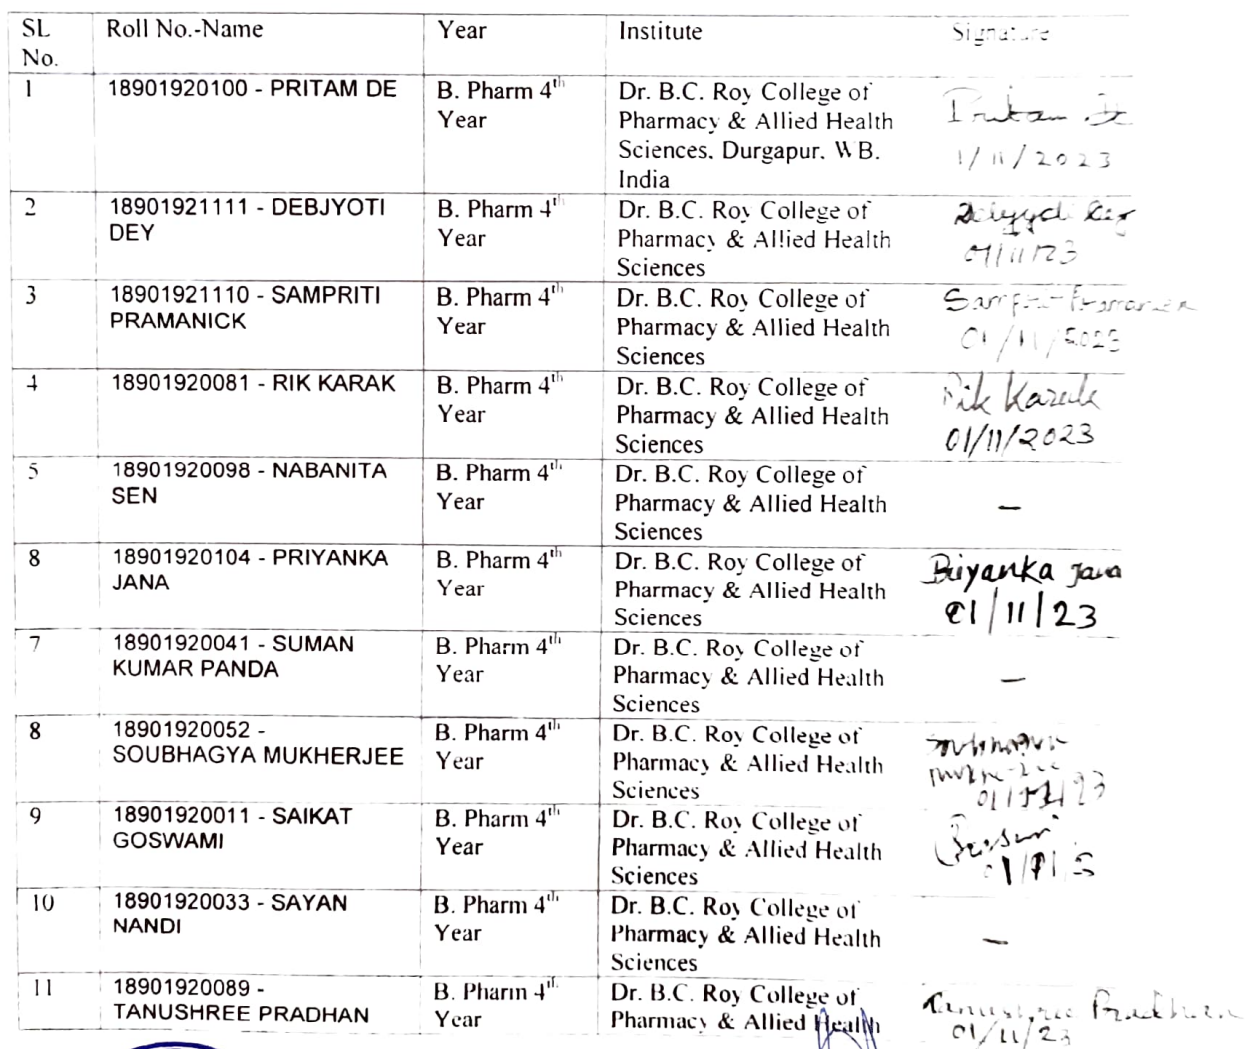 SL No. Roll No.-Name Year Institute Signature
1 18901920100 - PRITAM DE B. Pharm 4th Year Dr. B.C. Roy College of Pharmacy & Allied Health Sciences, Durgapur, W.B. India Pritam De 1/11/2023
2 18901921111 - DEBJYOTI DEY B. Pharm 4th Year Dr. B.C. Roy College of Pharmacy & Allied Health Sciences 01/11/23
3 18901921110 - SAMPRITI PRAMANICK B. Pharm 4th Year Dr. B.C. Roy College of Pharmacy & Allied Health Sciences 01/11/2023
4 18901920081 - RIK KARAK B. Pharm 4th Year Dr. B.C. Roy College of Pharmacy & Allied Health Sciences Rik Karak 01/11/2023
5 18901920098 - NABANITA SEN B. Pharm 4th Year Dr. B.C. Roy College of Pharmacy & Allied Health Sciences –
8 18901920104 - PRIYANKA JANA B. Pharm 4th Year Dr. B.C. Roy College of Pharmacy & Allied Health Sciences Priyanka Jana 01/11/23
7 18901920041 - SUMAN KUMAR PANDA B. Pharm 4th Year Dr. B.C. Roy College of Pharmacy & Allied Health Sciences –
8 18901920052 - SOUBHAGYA MUKHERJEE B. Pharm 4th Year Dr. B.C. Roy College of Pharmacy & Allied Health Sciences 01/11/23
9 18901920011 - SAIKAT GOSWAMI B. Pharm 4th Year Dr. B.C. Roy College of Pharmacy & Allied Health Sciences
10 18901920033 - SAYAN NANDI B. Pharm 4th Year Dr. B.C. Roy College of Pharmacy & Allied Health Sciences –
11 18901920089 - TANUSHREE PRADHAN B. Pharm 4th Year Dr. B.C. Roy College of Pharmacy & Allied Health Tanushree Pradhan 01/11/23